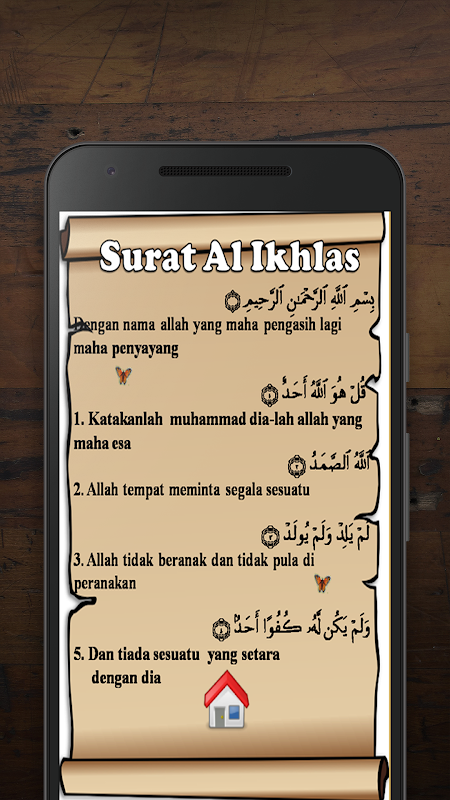 Surat Al Ikhlas
بِسْمِ اللَّهِ الرَّحْمَٰنِ الرَّحِيمِ
Dengan nama allah yang maha pengasih lagi
maha penyayang
قُلْ هُوَ اللَّهُ أَحَدٌ ١
1. Katakanlah muhammad dia-lah allah yang
maha esa
اللَّهُ الصَّمَدُ ٢
2. Allah tempat meminta segala sesuatu
لَمْ يَلِدْ وَلَمْ يُولَدْ ٣
3. Allah tidak beranak dan tidak pula di
peranakan
وَلَمْ يَكُن لَّهُ كُفُوًا أَحَدٌ ٤
5. Dan tiada sesuatu yang setara
dengan dia